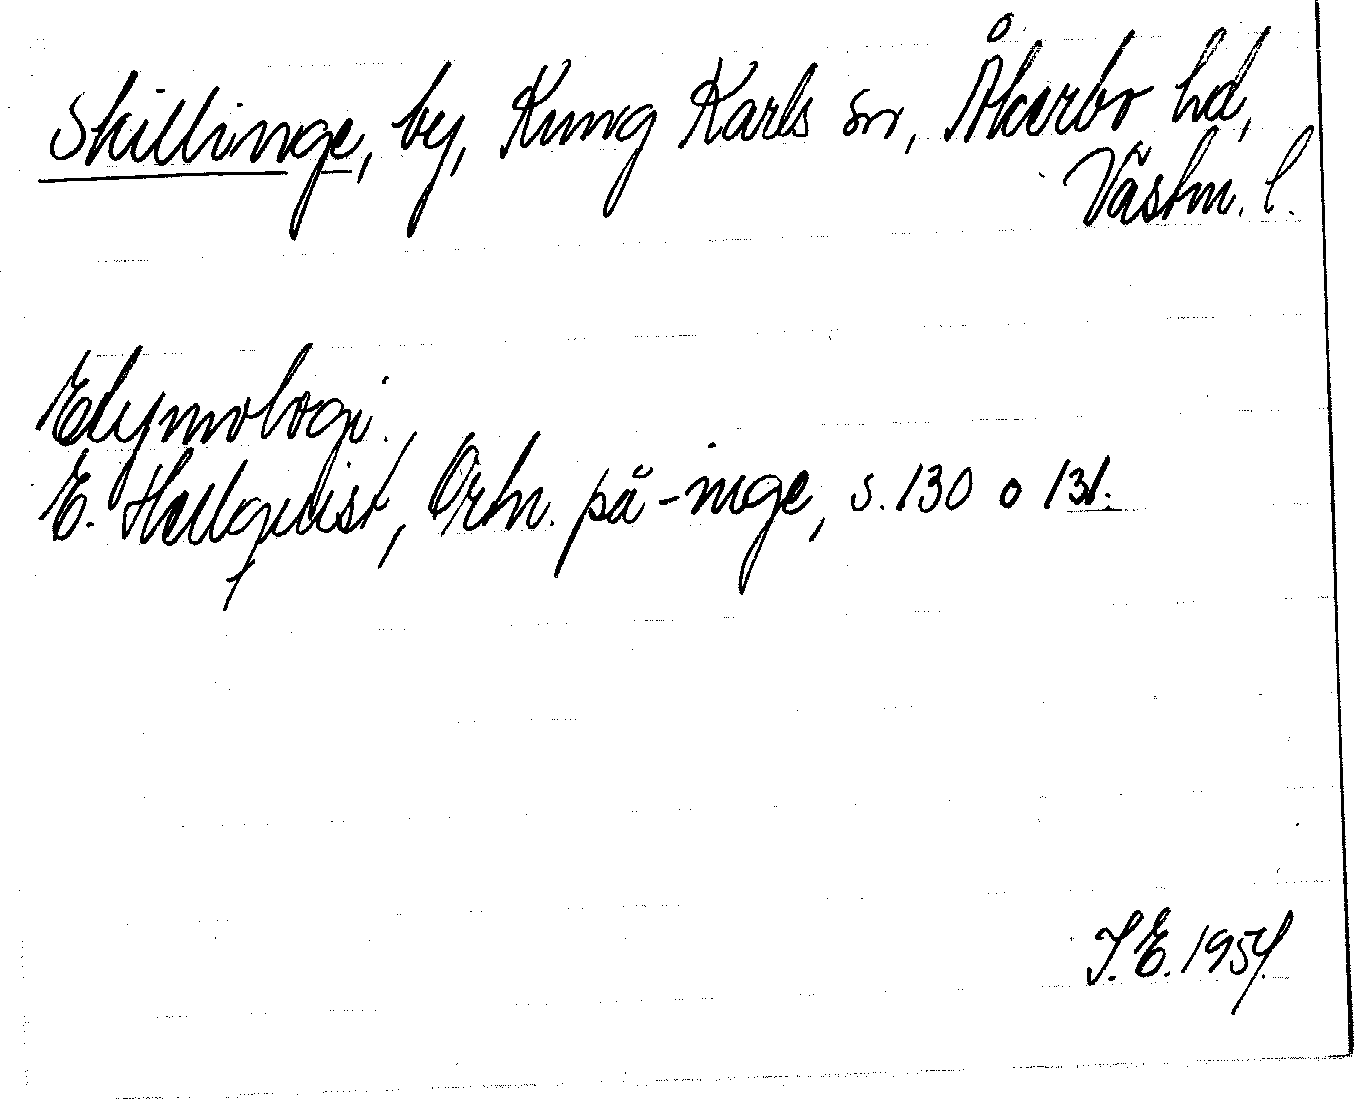 Skillinge, by, Kung Karls sn, Åkerbo hd,
Västm. l.
Etymologi.
E. Hellquist, Ortn. på -inge, s. 130 o 131.
I.E. 1954.